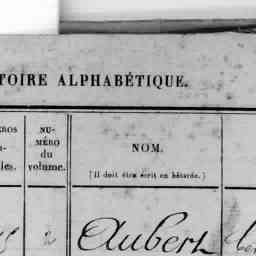 TOIRE ALPHABÉTIQUE.
ÉROS
les.
NU-
MÉRO
du
volume.
NOM.
(Il doit être écrit en bâtarde.)
2 Aubert